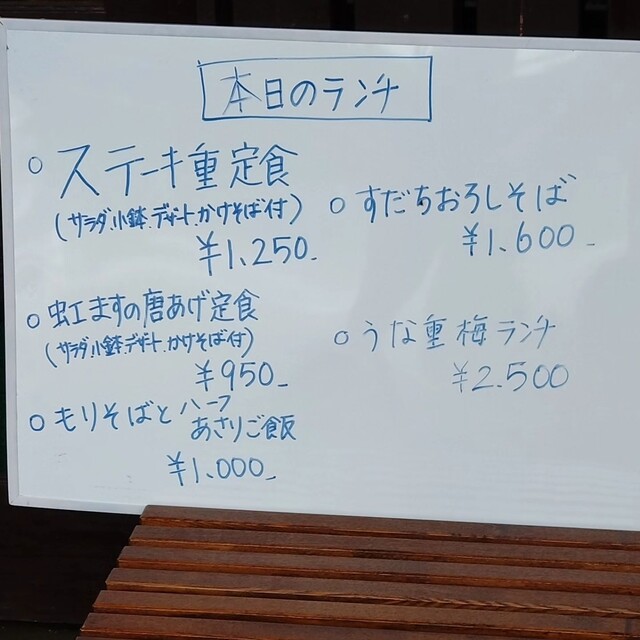 本日のランチ
○ステーキ重定食
(サラダ、小鉢、デザート、かけそば付)
¥1,250_
○虹ますの唐あげ定食
(サラダ、小鉢、デザート、かけそば付)
¥950_
○もりそばとハーフ
あさりご飯
¥1,000_
○すだちおろしそば
¥1,600_
○うな重 梅ランチ
¥2,500